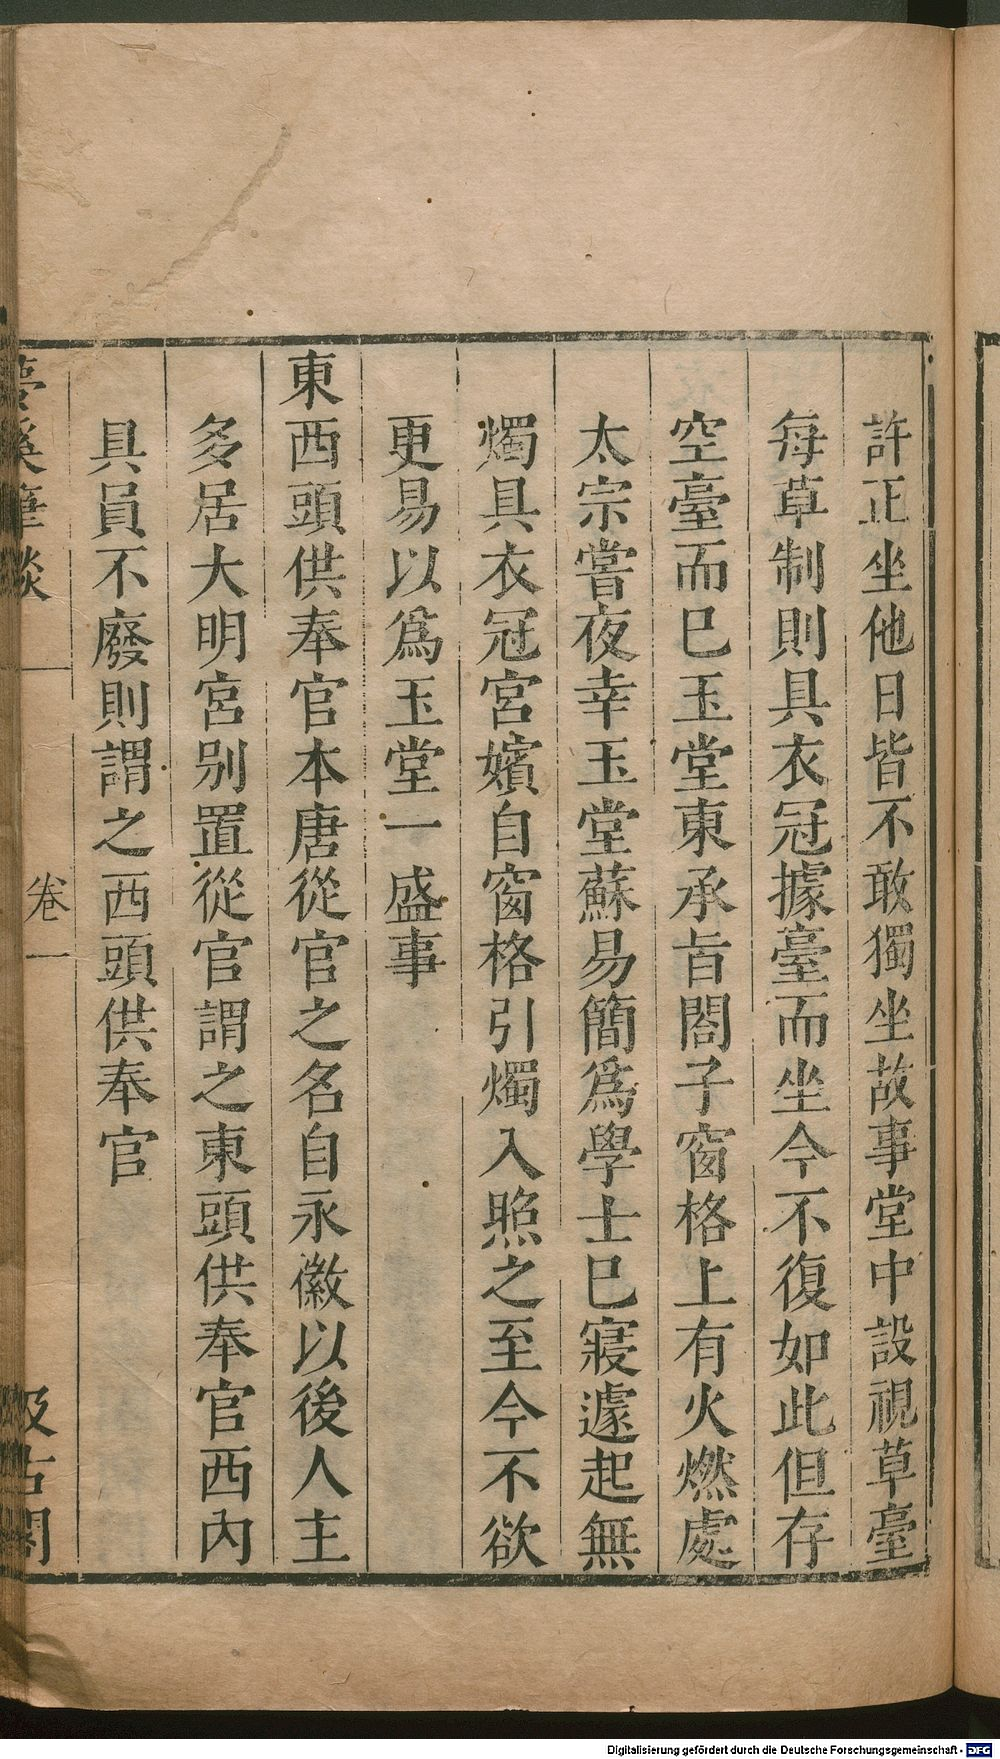 許正坐他日皆不敢獨坐故事堂中設視草臺
每草制則具衣冠據臺而坐今不復如此但存
空臺而已玉堂東承旨閤子窗格上有火燃處
太宗嘗夜幸玉堂蘇易簡為學士已寢遽起無
燭具衣冠宮嬪自窗格引燭入照之至今不欲
更易以為玉堂一盛事
東西頭供奉官本唐從官之名自永徽以後人主
多居大明宮別置從官謂之東頭供奉官西內
具員不廢則謂之西頭供奉官
夢溪筆談
卷一
汲古閣
Digitalisierung gefördert durch die Deutsche Forschungsgemeinschaft - DFG